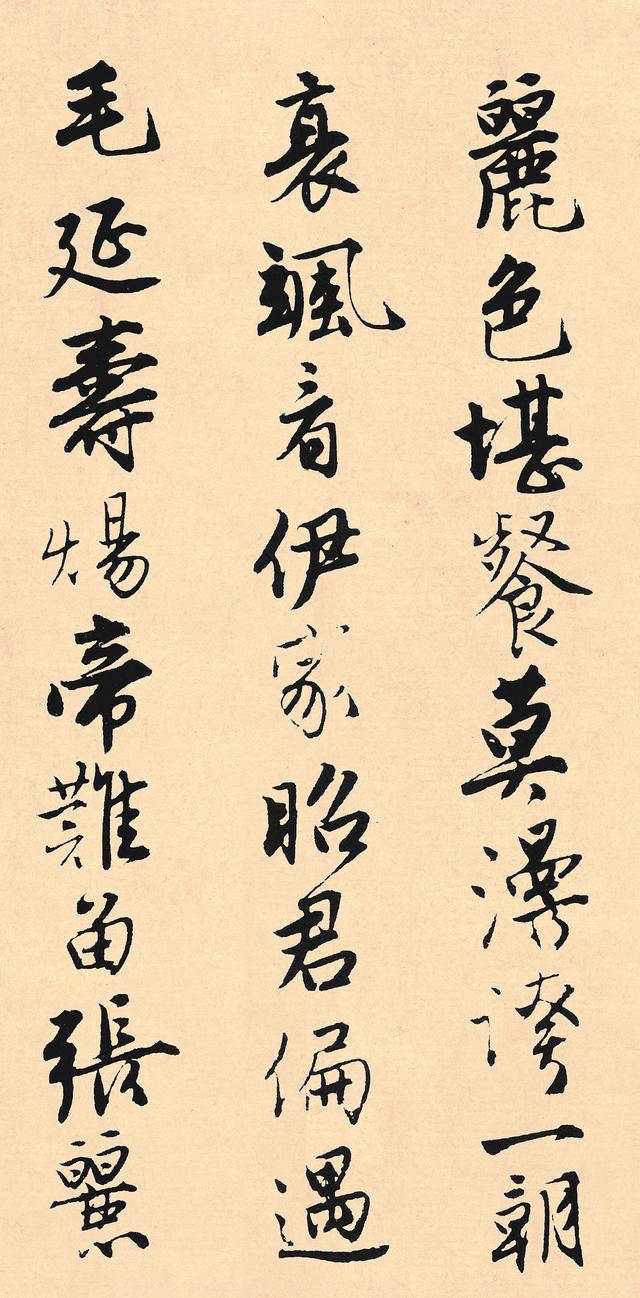 麗色堪餐莫漫誇一朝
衰颯有伊家昭君偏遇
毛延壽煬帝難留張麗